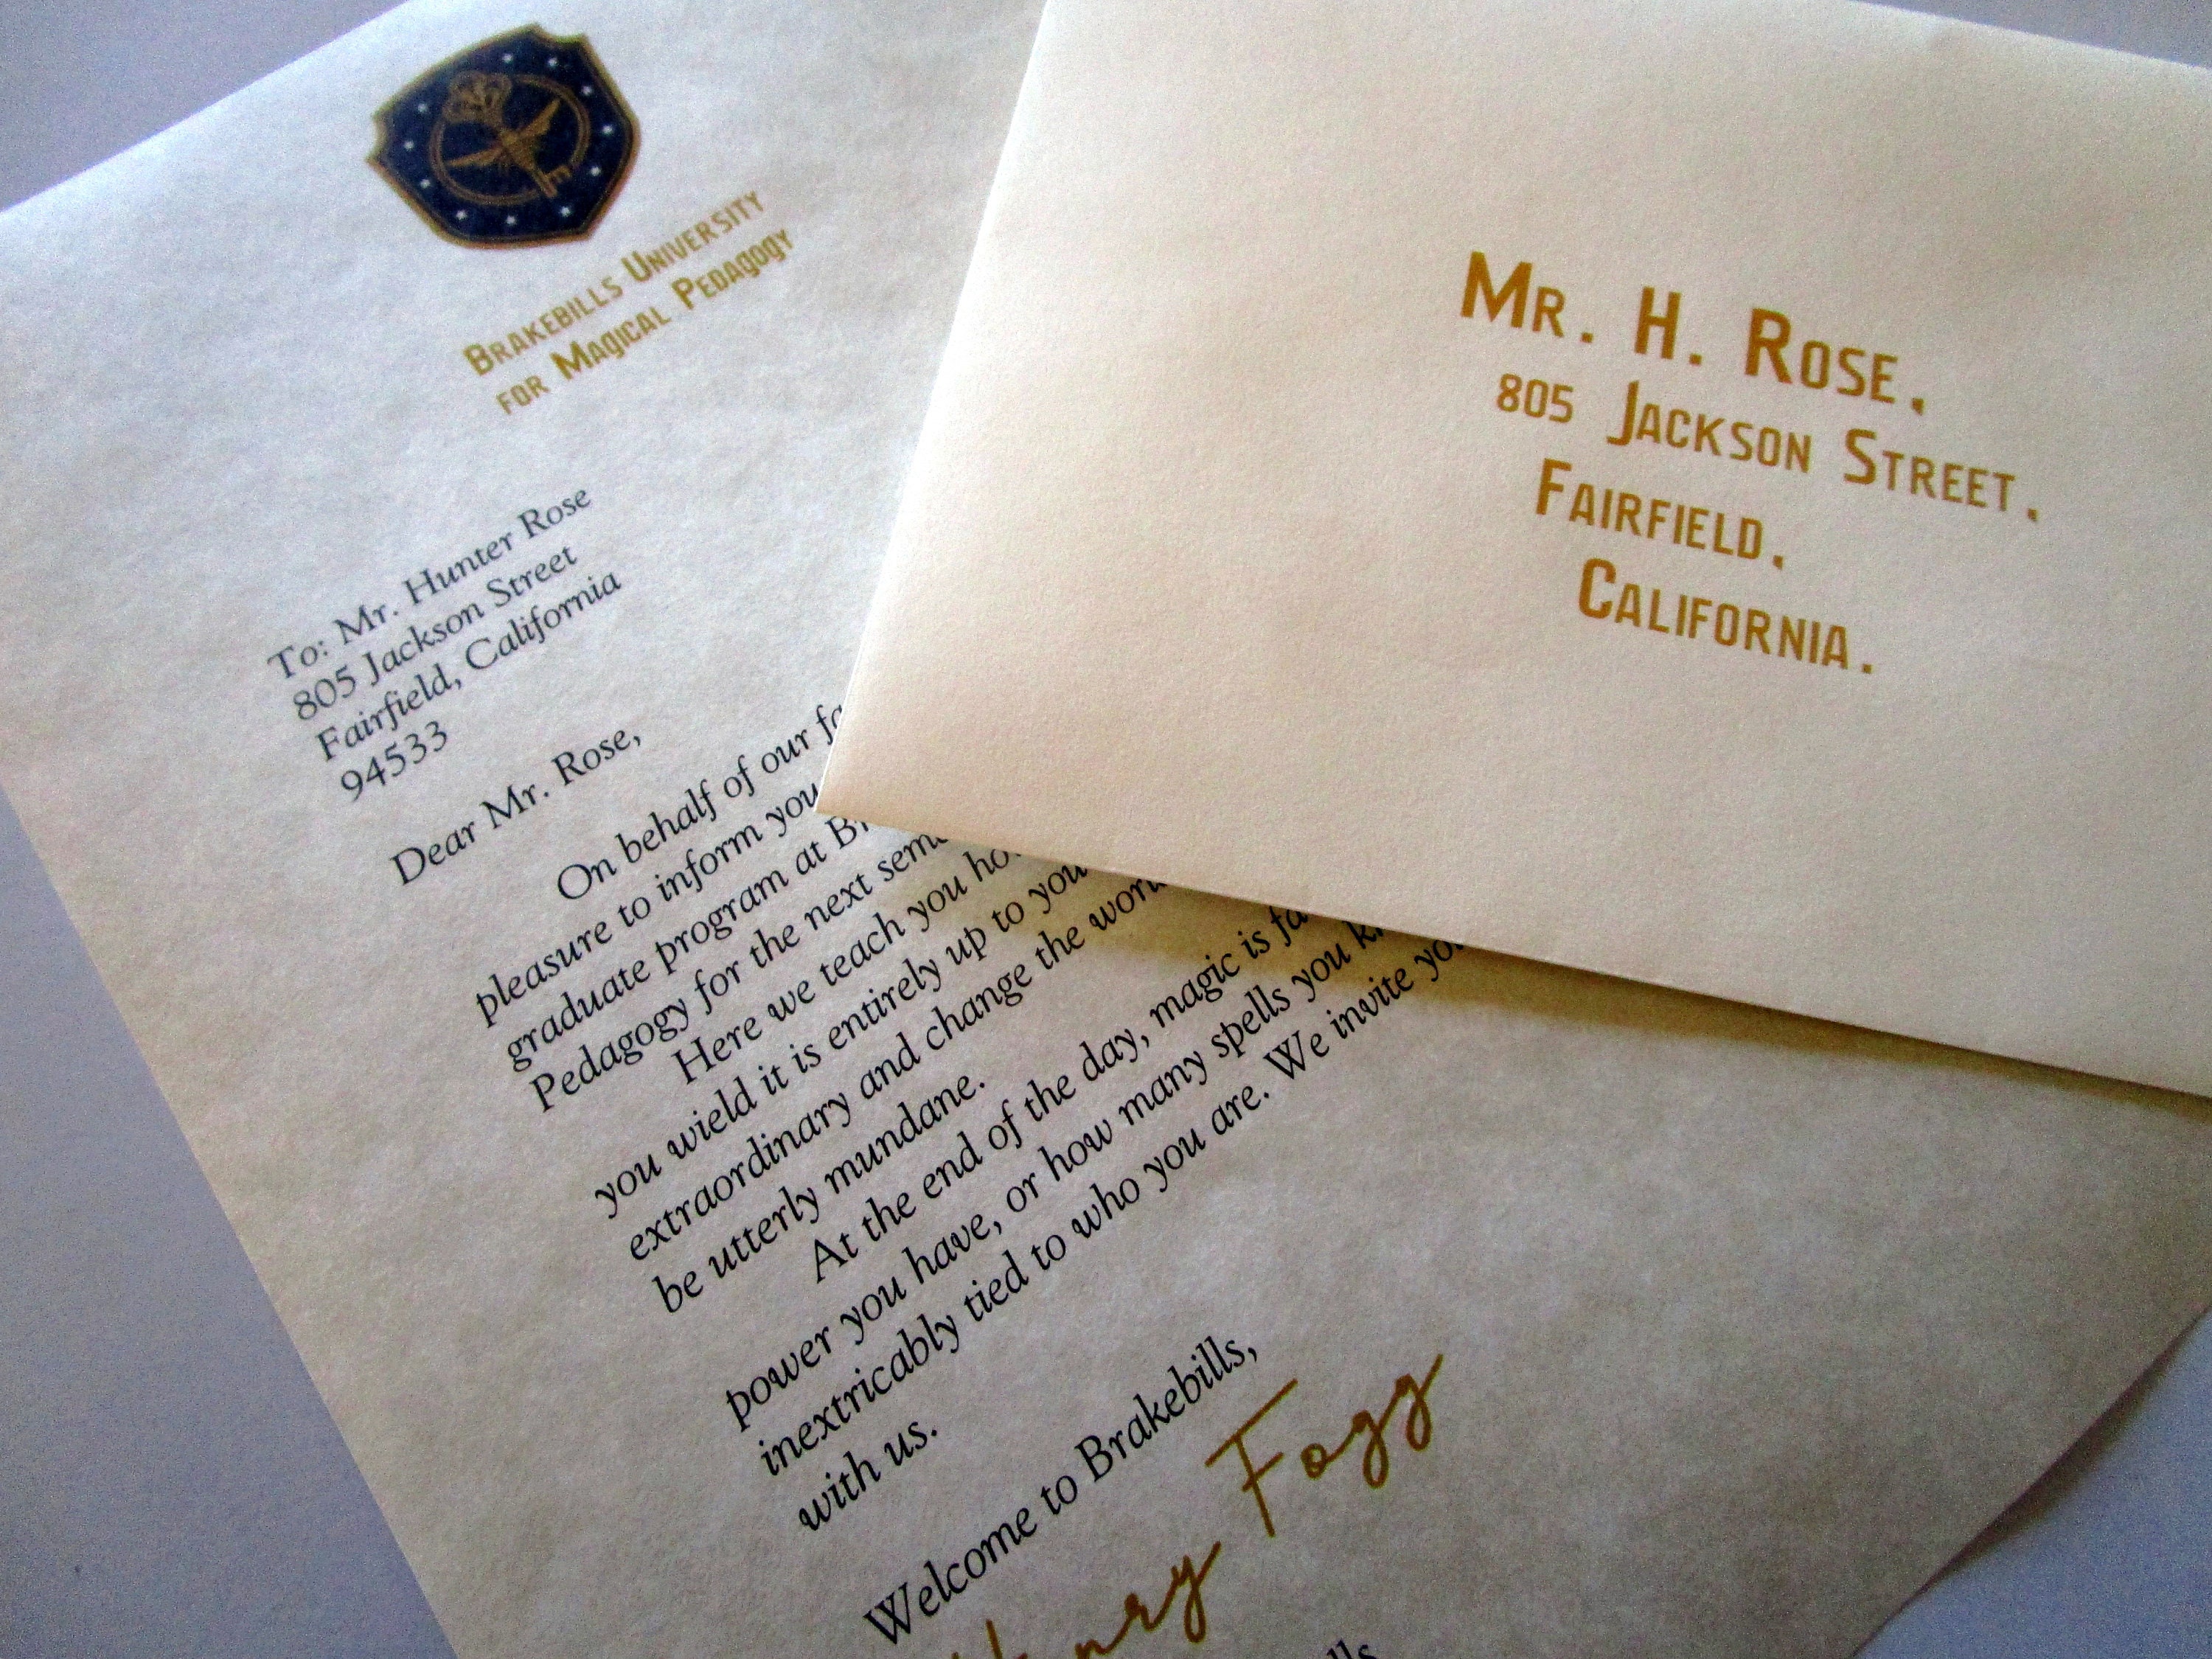 BRAKEBILLS UNIVERSITY
FOR MAGICAL PEDAGOGY
To: Mr. Hunter Rose
805 Jackson Street
Fairfield, California
94533
Dear Mr. Rose,
On behalf of our
pleasure to inform you
graduate program at
Pedagogy for the next
Here we teach you
you wield it is entirely up to you
extraordinary and change the
be utterly mundane.
At the end of the day, magic is
power you have, or how many spells you
inextricably tied to who you are. We invite
with us.
Welcome to Brakebills,
Henry Fogg
MR. H. ROSE.
805 JACKSON STREET.
FAIRFIELD.
CALIFORNIA.